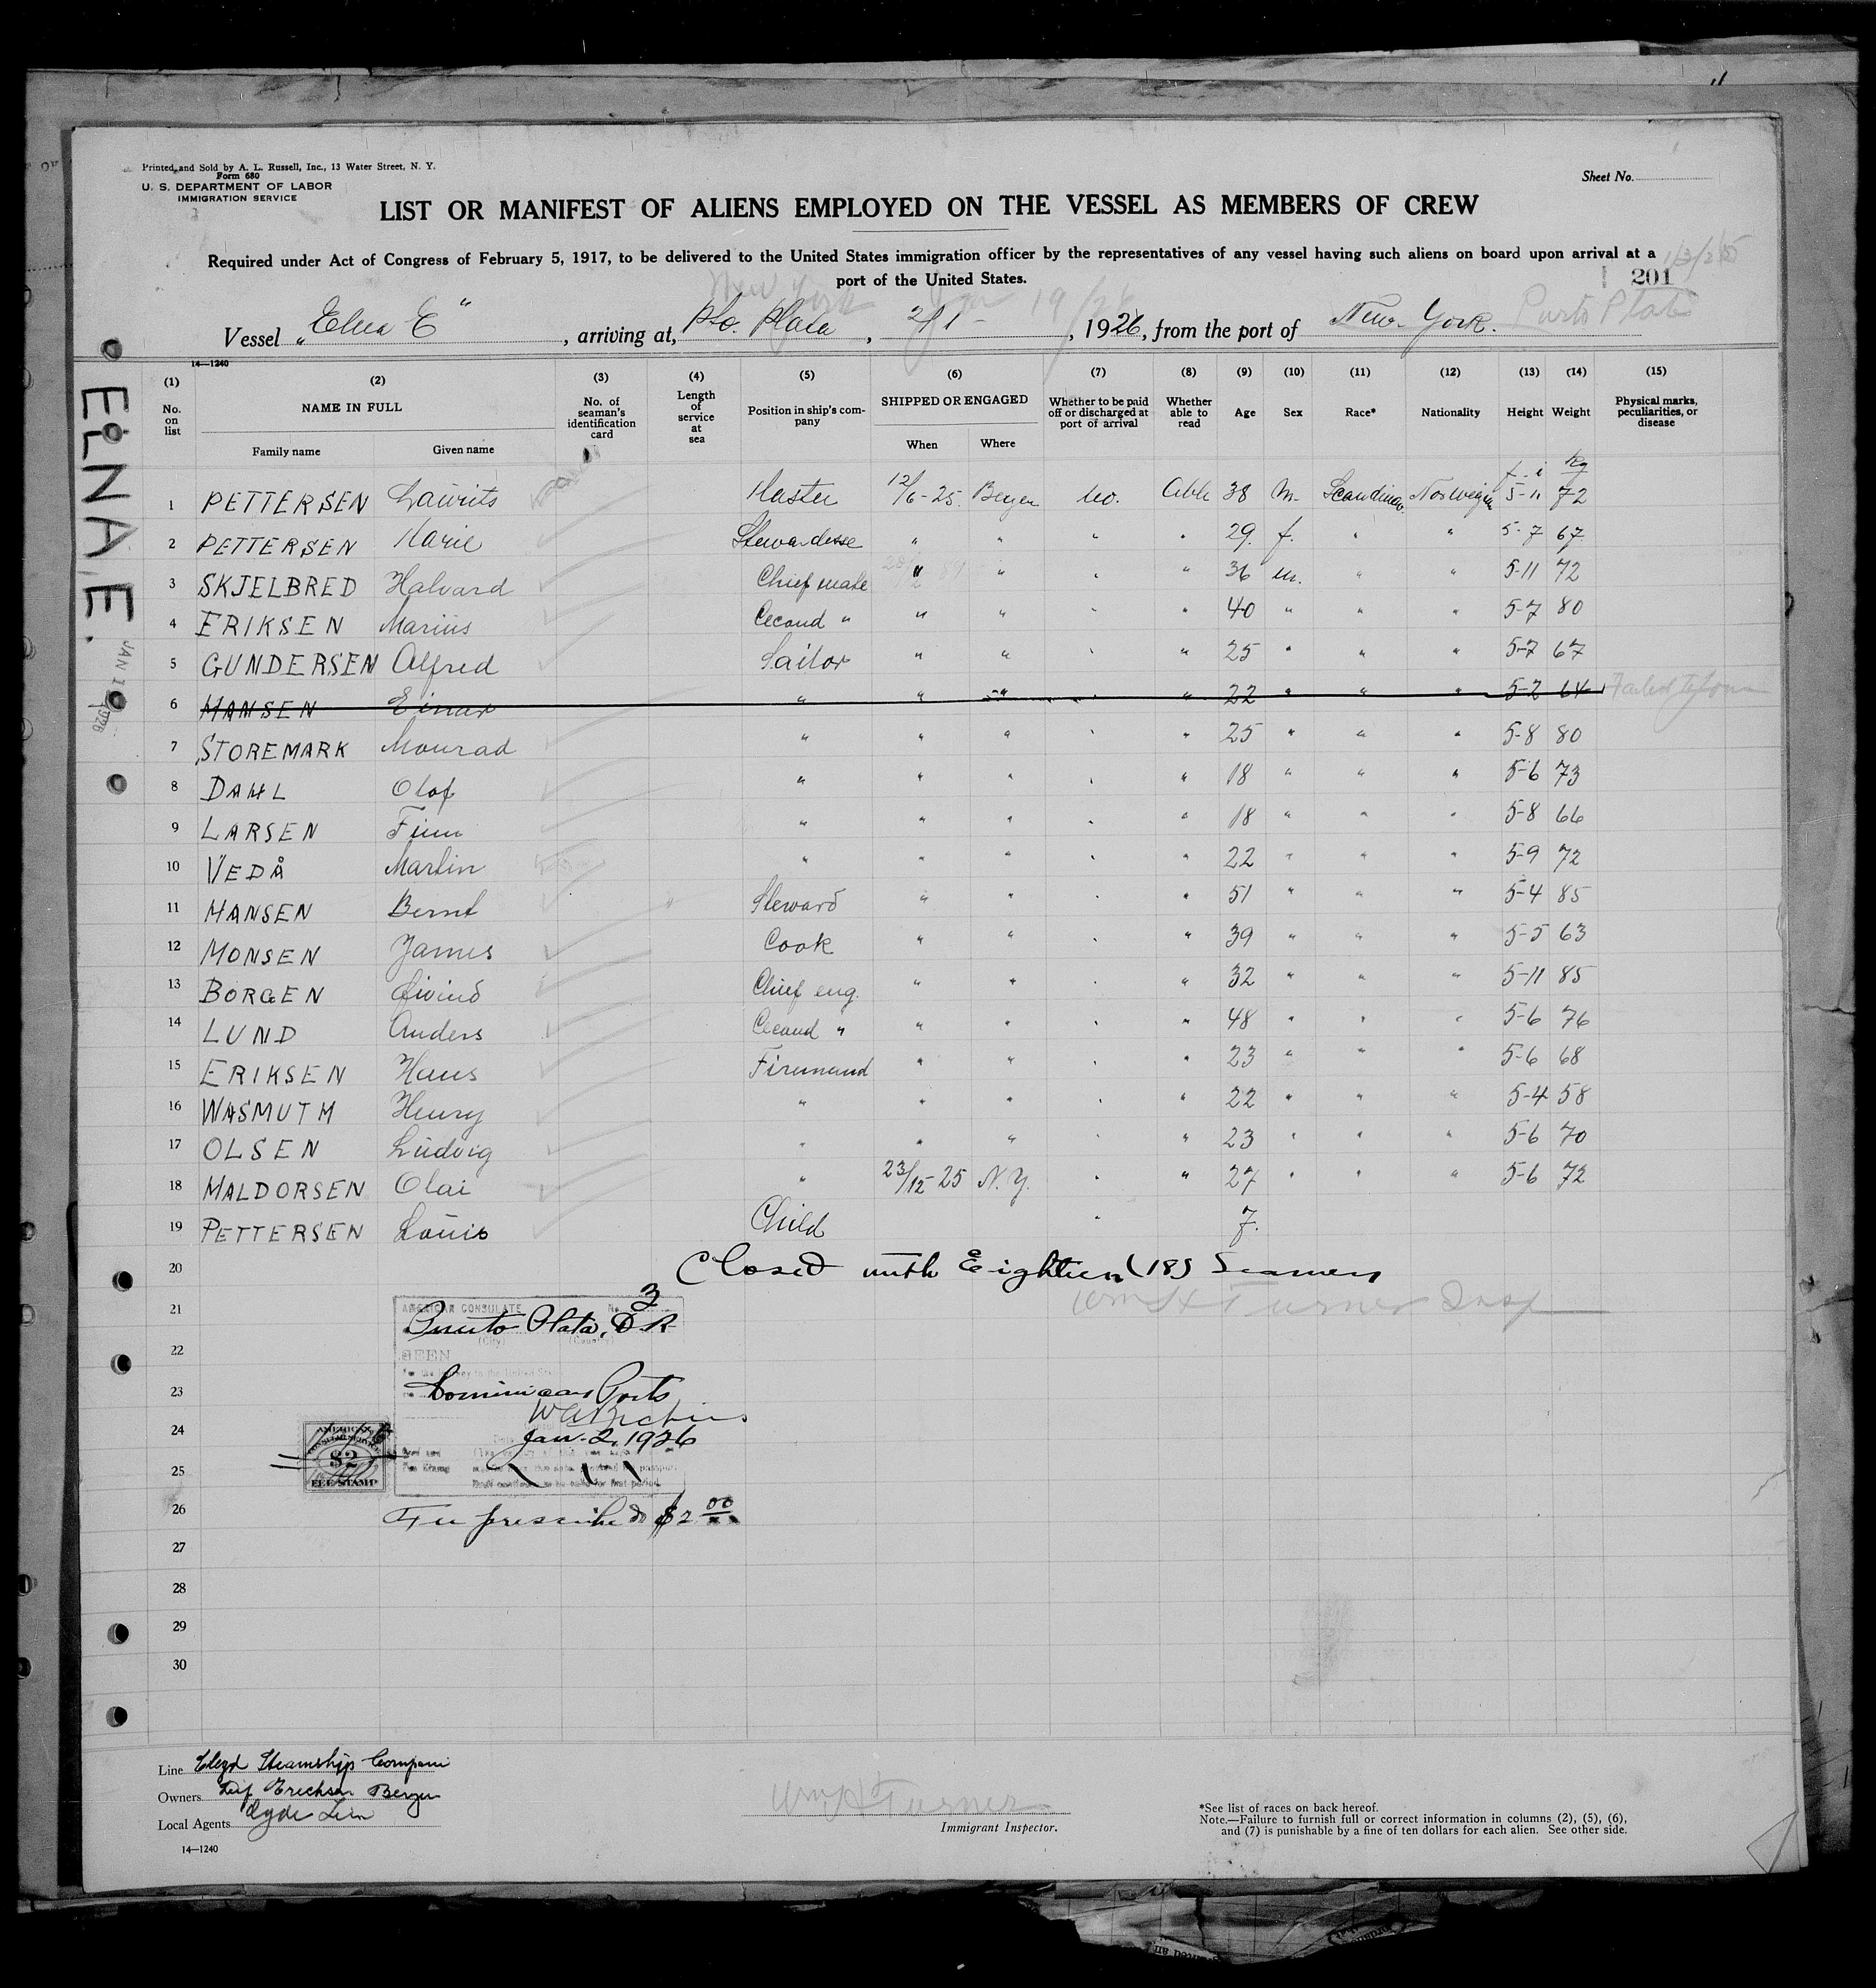 Printed and Sold by A. L. Russell, Inc., 13 Water Street, N. Y.
Form 680
U. S. DEPARTMENT OF LABOR
IMMIGRATION SERVICE
Sheet No.
LIST OR MANIFEST OF ALIENS EMPLOYED ON THE VESSEL AS MEMBERS OF CREW
Required under Act of Congress of February 5, 1917, to be delivered to the United States immigration officer by the representatives of any vessel having such aliens on board upon arrival at a
port of the United States.
201
New York Jan 19/26
Vessel „Elna E", arriving at, Pto. Plata, 2/1 -, 1926, from the port of New-York. Puerto Plata
14—1240
(1) (2) (3) (4) (5) (6) (7) (8) (9) (10) (11) (12) (13) (14) (15)
No. on list NAME IN FULL Family name Given name No. of seaman's identification card Length of service at sea Position in ship's company SHIPPED OR ENGAGED When Where Whether to be paid off or discharged at port of arrival Whether able to read Age Sex Race* Nationality Height Weight Physical marks, peculiarities, or disease
f - i kg
1 PETTERSEN Laurits Master 12/6-25. Bergen no. Able 38 m. Scandinav. Norwegian 5-11 72
2 PETTERSEN Marie Stewardesse " " " " 29. f. " " 5-7 67
3 SKJELBRED Halvard Chief mate " " " " 36 m. " " 5-11 72
4 ERIKSEN Marius Second " " " " " 40 " " " 5-7 80
5 GUNDERSEN Alfred Sailor " " " " 25 " " " 5-7 67
6 HANSEN Einar " " " " " 22 " " " 5-2 64 Failed to join
7 STOREMARK Monrad " " " " " 25 " " " 5-8 80
8 DAHL Olof " " " " " 18 " " " 5-6 73
9 LARSEN Finn " " " " " 18 " " " 5-8 66
10 VEDÅ Martin " " " " " 22 " " " 5-9 72
11 HANSEN Bernt Steward " " " " 51 " " " 5-4 85
12 MONSEN James Cook " " " " 39 " " " 5-5 63
13 BORGEN Eivind Chief eng. " " " " 32 " " " 5-11 85
14 LUND Anders Second " " " " " 48 " " " 5-6 76
15 ERIKSEN Hans Firemand " " " " 23 " " " 5-6 68
16 WASMUTH Henry " " " " " 22 " " " 5-4 58
17 OLSEN Ludvig " " " " " 23 " " " 5-6 70
18 HALDORSEN Olai " 23/12-25 N.Y. " " 27 " " " 5-6 72
19 PETTERSEN Louis Child " 7.
20 Closed with Eighteen (18) Seamen
21 Wm H Turner Insp
AMERICAN CONSULATE No. 3
Puerto Plata, D.R.
(City) (Country)
22
SEEN
23
Dominican Ports
24
Jan. 2, 1926
AMERICAN
CONSULAR SERVICE
$2
FEE STAMP
25
26 Fee prescribed $2.00
27
28
29
30
ELNA E.
JAN 1926
Line Steamship Compani
Owners Leif Erichsen Bergen
Local Agents Clyde Line
14—1240
Wm H Turner
Immigrant Inspector.
*See list of races on back hereof.
Note.—Failure to furnish full or correct information in columns (2), (5), (6),
and (7) is punishable by a fine of ten dollars for each alien. See other side.